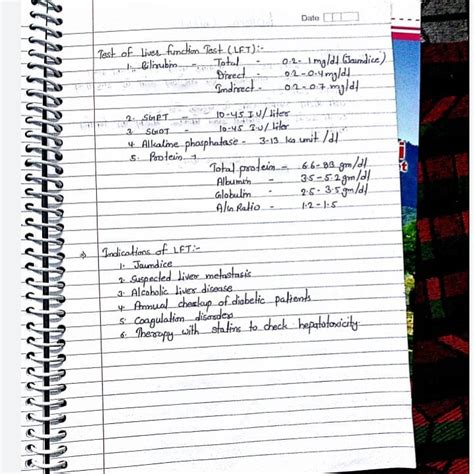 Date
Test of Liver function Test (LFT):-
1. Bilirubin - Total - 0.2 - 1 mg/dl (Jaundice)
Direct - 0.2 - 0.4 mg/dl
Indirect - 0.2 - 0.7 mg/dl
2. SGPT - 10-45 IU/liter
3. SGOT - 10-45 IU/liter
4. Alkaline phosphatase - 3-13 ka unit /dl
5. Protein
Total protein - 6.6-8.3 gm/dl
Albumin - 3.5-5.2 gm/dl
Globulin - 2.5-3.5 gm/dl
Ratio - 1.2-1.5
⇒ Indications of LFT:-
1. Jaundice
2. Suspected Liver metastasis
3. Alcoholic Liver disease
4. Annual checkup of diabetic patients
5. Coagulation disorders
6. Therapy with statins to check hepatotoxicity